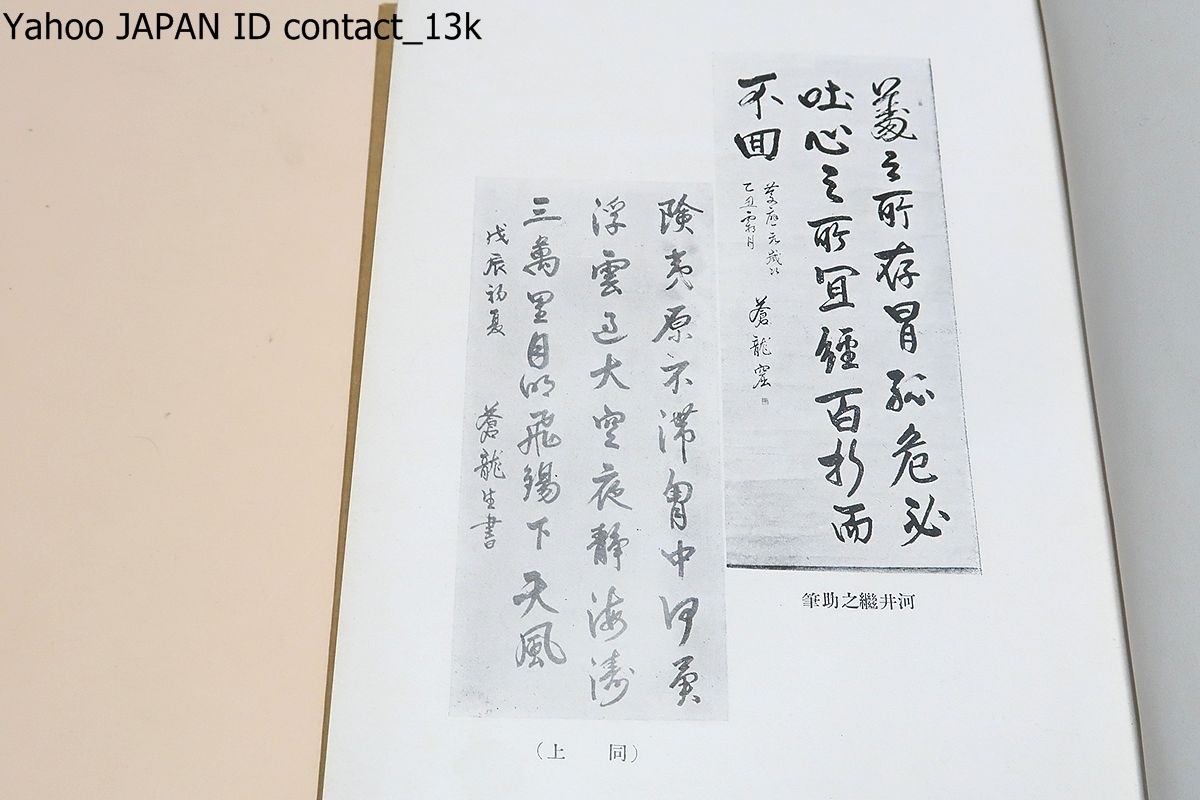 Yahoo JAPAN ID contact_13k
義之所存冒孤危必
吐心之所冝經百折而
不回
慶應元歳次
乙丑霜月
蒼龍窟
河井繼之助筆
険夷原不滞胷中何異
浮雲過大空夜静海濤
三萬里月明飛錫下天風
戊辰初夏 蒼龍生書
(同上)